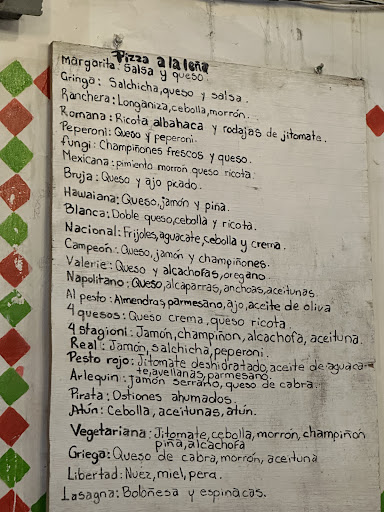 Pizza a la leña
Margarita: Salsa y queso.
Gringa: Salchicha, queso y salsa.
Ranchera: Longaniza, cebolla, morrón.
Romana: Ricota albahaca y rodajas de jitomate.
Peperoni: Queso y peperoni.
fungi: Champiñones frescos y queso.
Mexicana: pimiento morrón queso ricota.
Bruja: Queso y ajo picado.
Hawaiana: Queso, jamón y piña.
Blanca: Doble queso, cebolla y ricota.
Nacional: Frijoles, aguacate, cebolla y crema.
Campeón: Queso, jamón y champiñones.
Valerie: Queso y alcachofas, oregano.
Napolitano: Queso, alcaparras, anchoas, aceitunas.
Al pesto: Almendras, parmesano, ajo, aceite de oliva
4 quesos: Queso crema, queso ricota.
4 stagioni: Jamón, champiñon, alcachofa, aceituna.
Real: Jamón, salchicha, peperoni.
Pesto rojo: Jitomate deshidratado, aceite de aguaca-
te, avellanas, parmesano.
Arlequin: jamón serrano, queso de cabra.
Pirata: Ostiones ahumados.
Atún: Cebolla, aceitunas, atún.
Vegetariana: Jitomate, cebolla, morrón, champiñon
piña, alcachofa
Griega: Queso de cabra, morrón, aceituna
Libertad: Nuez, miel, pera.
Lasagna: Boloñesa y espinacas.